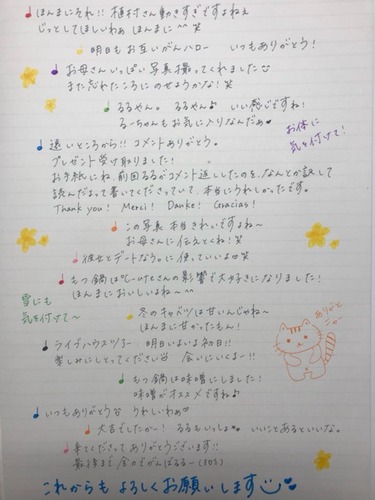 ほんまにそれ!! 植村さん動きすぎですねえ
じっとしてほしいわぁ ほんまに^^ 笑
明日もお互いがんハロー いつもありがとう!
お母さんいっぱい写真撮ってくれました
また忘れたころにのせようかな! 笑
るるやん。 るるやん♪ いい感じですね!
るーちゃんもお気に入りなんだぁ
お体に
気を付けて!
遠いところから!! コメントありがとう。
プレゼント受け取りました!
お手紙にね、前回るるがコメント返ししたのを、なんとか訳して
読んだよって書いてくださっていて、本当にうれしかったです。
Thank you! Merci! Danke! Gracias!
この写真本当きれいですよね~
お母さんに伝えとくね! 笑
彼女とデートなう。に使っていいよ 笑
もつ鍋は℃-uteさんの影響で大好きになりました!
ほんまにおいしいよね~^^
雪にも
気を付けて~
冬のキャベツは甘いんじゃね~
ほんまに甘かったもん!
ありがと
ニャー
ライブハウスツアー 明日いよいよ初日!!
楽しみにしとってください 会いにいくよー!!
もつ鍋は味噌にしました!
味噌がオススメですね♪
いつもありがとう うれしいわぁ
大吉でしたかー! るるもいっしょ いいことあるといいな。
来てくださってありがとうございます!!
最後まで全力でがんばるるー(303)
これからも よろしくお願いします